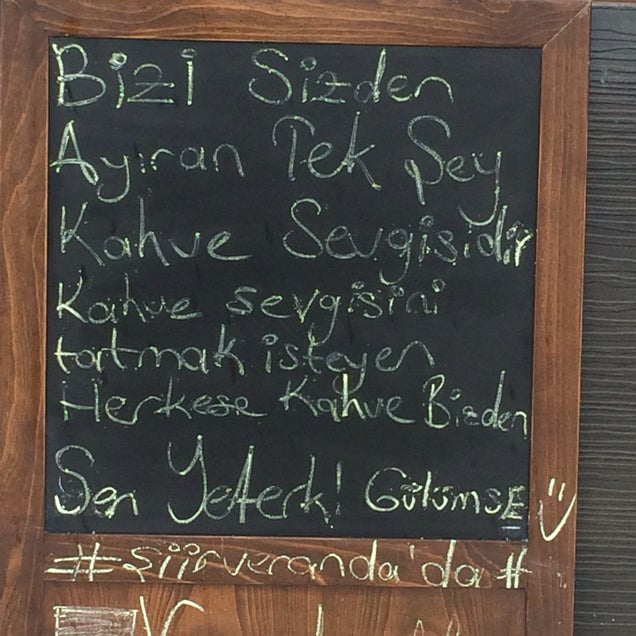 Bizi Sizden
Ayıran Tek Şey
Kahve Sevgisidir
Kahve sevgisini
tartmak isteyen
Herkese Kahve Bizden
Sen Yeterki! Gülümse
#şiirveranda'da#